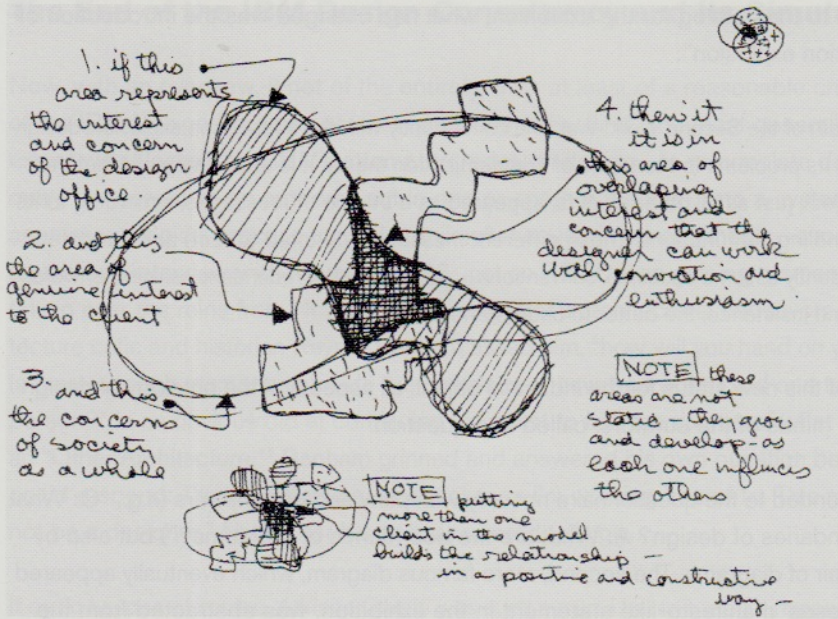 1. if this
area represents
the interest
and concern
of the design
office
2. and this
the area of
genuine interest
to the client
3. and this
the concerns
of society
as a whole
4. then it
it is in
this area of
overlaping
interest and
concern that the
designer can work
with conviction and
enthusiasm
NOTE these
areas are not
static - they grow
and develop - as
each one influences
the others
NOTE: putting
more than one
client in the model
builds the relationship -
in a positive and constructive
way -